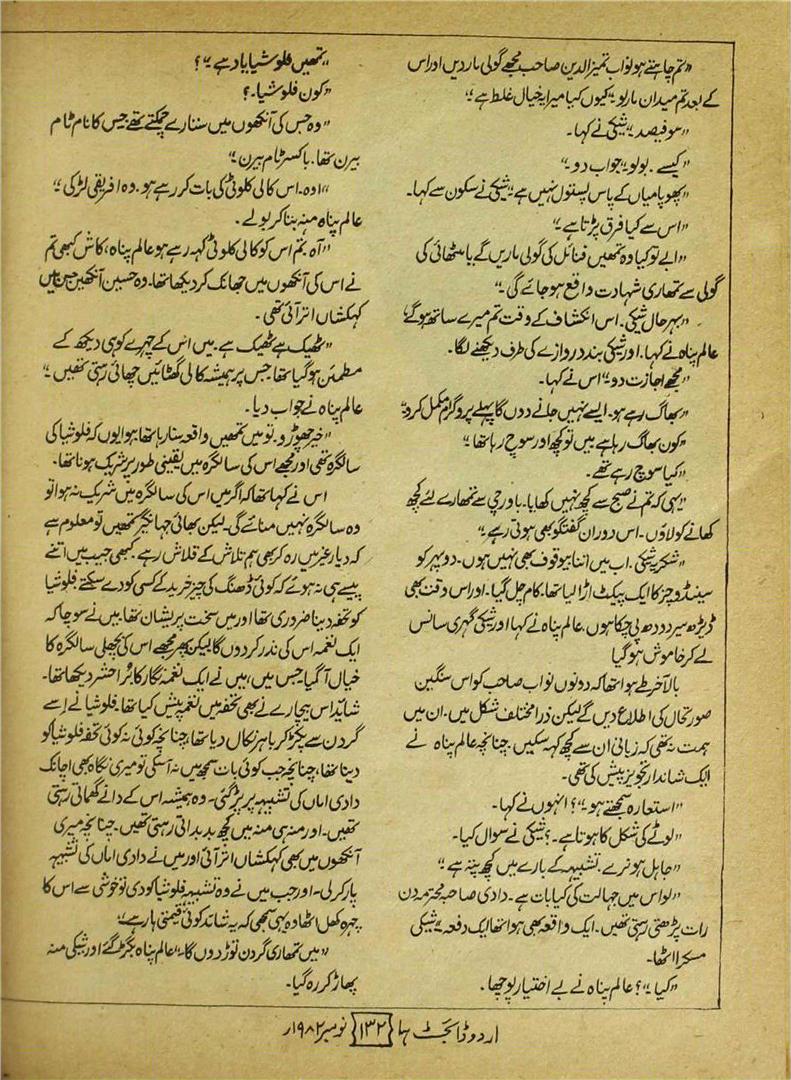 ”تم چاہتے ہو نواب تمیزالدین صاحب مجھے گولی مار دیں اور اس
کے بعد تم میدان مارلو۔“ کیوں کیا میرا یہ خیال غلط ہے“؛
”سو فیصد۔“ شیکی نے کہا۔
”کیسے۔ بولو“ جواب دو۔“
”پھوپا میاں کے پاس پستول نہیں ہے“ شیکی نے سکون سے کہا۔
”اس سے کیا فرق پڑتا ہے“
”ابے تو کیا وہ تمھیں فنائل کی گولی ماریں گے یا مٹھائی کی
گولی سے تمھاری شہادت واقع ہو جائے گی۔“
”بہرحال شیکی۔ اس انکشاف کے وقت تم میرے ساتھ ہو گے
عالم پناہ نے کہا۔ اور شیکی بند دروازے کی طرف دیکھنے لگا۔
”مجھے اجازت دو“ اس نے کہا۔
”بھاگ رہے ہو۔ ایسے نہیں جانے دوں گا پہلے پروگرام مکمل کرو“
”کون بھاگ رہا ہے میں تو کچھ اور سوچ رہا تھا“
”کیا سوچ رہے تھے۔
”یہی کہ تم نے صبح سے کچھ نہیں کھایا۔ باورچی سے تمھارے لئے کچھ
کھانے کو لاؤں۔ اس دوران گفتگو بھی ہوتی رہے“
”شکریہ شیکی۔ اب میں اتنا بیوقوف بھی نہیں ہوں۔ دوپہر کو
سینڈوچز کا ایک پیکٹ اڑا لیا تھا۔ کام چل گیا۔ اور اس وقت بھی
ڈیڑھ سیر دودھ پی چکا ہوں، عالم پناہ نے کہا اور شیکی گہری سانس
لے کر خاموش ہو گیا
بالآخر طے ہوا تھا کہ دونوں نواب صاحب کو اس سنگین
صورتحال کی اطلاع دیں گے لیکن ذرا مختلف شکل میں۔ ان میں
ہمت نہ تھی کہ زبانی ان سے کچھ کہہ سکیں۔ چنانچہ عالم پناہ نے
ایک شاندار تجویز پیش کی تھی۔
”استعارہ سمجھتے ہو“؟ انہوں نے کہا۔
”لوٹے کی شکل کا ہوتا ہے۔؟ شیکی نے سوال کیا۔
”جاہل ہو نرے۔ تشبیہہ کے بارے میں کچھ پتہ ہے“
”لو اس میں جہالت کی کیا بات ہے۔ دادی صاحبہ محترمہ دن
رات پڑھتی رہتی تھیں۔ ایک واقعہ بھی ہوا تھا ایک دفعہ“ شیکی
مسکرا اٹھا۔
”کیا“؟ عالم پناہ نے بے اختیار پوچھا۔
”تمھیں فلوشیا یاد ہے“؟
”کون فلوشیا۔؟
”وہ جس کی آنکھوں میں ستارے چمکتے تھے جس کا نام ٹام
بیرن تھا۔ باکسر ٹام بیرن۔“
”اوہ۔ اس کالی کلوٹی کی بات کر رہے ہو۔ وہ افریقی لڑکی“
عالم پناہ منہ بنا کر بولے۔
”آہ تم اس کو کالی کلوٹی کہہ رہے ہو عالم پناہ، کاش کبھی تم
نے اس کی آنکھوں میں جھانک کر دیکھا تھا۔ وہ حسین آنکھیں جن میں
کہکشاں اتر آئی تھی۔
”ٹھیک ہے ٹھیک ہے۔ میں اس کے چہرے کو ہی دیکھ کے
مطمئن ہو گیا تھا۔ جس پر ہمیشہ کالی گھٹائیں چھائی رہتی تھیں۔“
عالم پناہ نے جواب دیا۔
”خیر چھوڑو۔ تو میں تمھیں واقعہ سنا رہا تھا ہوا یوں کہ فلوشیا کی
سالگرہ تھی اور مجھے اس کی سالگرہ میں یقینی طور پر شریک ہونا تھا۔
اس نے کہا تھا کہ اگر میں اس کی سالگرہ میں شریک نہ ہوا تو
وہ سالگرہ نہیں منائے گی۔ لیکن بھائی جہانگیر تمھیں تو معلوم ہے
کہ دیار غیر میں رہ کر بھی ہم تلاش کے قلاش رہے کبھی جیب میں اتنے
پیسے ہی نہ ہوئے کہ کوئی ڈھنگ کی چیز خرید کے کسی کو دے سکتے۔ فلوشیا
کو تحفہ دینا ضروری تھا اور میں سخت پریشان تھا۔ میں نے سوچا کہ
ایک نغمہ اس کی نذر کردوں گا لیکن پھر مجھے اس کی پچھلی سالگرہ کا
خیال آ گیا۔ جس میں، میں نے ایک نغمہ نگار کا بُرا حشر دیکھا تھا۔
شائد اس بیچارے نے بھی تحفہ میں نغمہ پیش کیا تھا۔ فلوشیا نے اسے
گردن سے پکڑ کر باہر نکال دیا تھا، چنانچہ کوئی نہ کوئی تحفہ فلوشیا کو
دینا تھا، چنانچہ جب کوئی بات سمجھ میں نہ آسکی تو میری نگاہ بھی اچانک
دادی اماں کی تشبیہہ پر پڑ گئی۔ وہ ہمیشہ اس کے دانے گھماتی رہتی
تھیں۔ اور منہ ہی منہ میں کچھ بدبداتی رہتی تھیں۔ چنانچہ میری
آنکھوں میں بھی کہکشاں اتر آئی اور میں نے دادی اماں کی تشبیہہ
پار کرلی۔ اور جب میں نے وہ تشبیہہ فلوشیا کو دی تو خوشی سے اس کا
چہرہ کھل اٹھا وہ یہی سمجھی کہ یہ شاند کوئی قیمتی ہار ہے“
”میں تمھاری گردن توڑ دوں گا۔“ عالم پناہ بگڑ گئے اور شیکی منہ
پھاڑ کر رہ گیا۔
اردو ڈائجسٹ ہما ۱۳۲ نومبر ۱۹۸۲ء